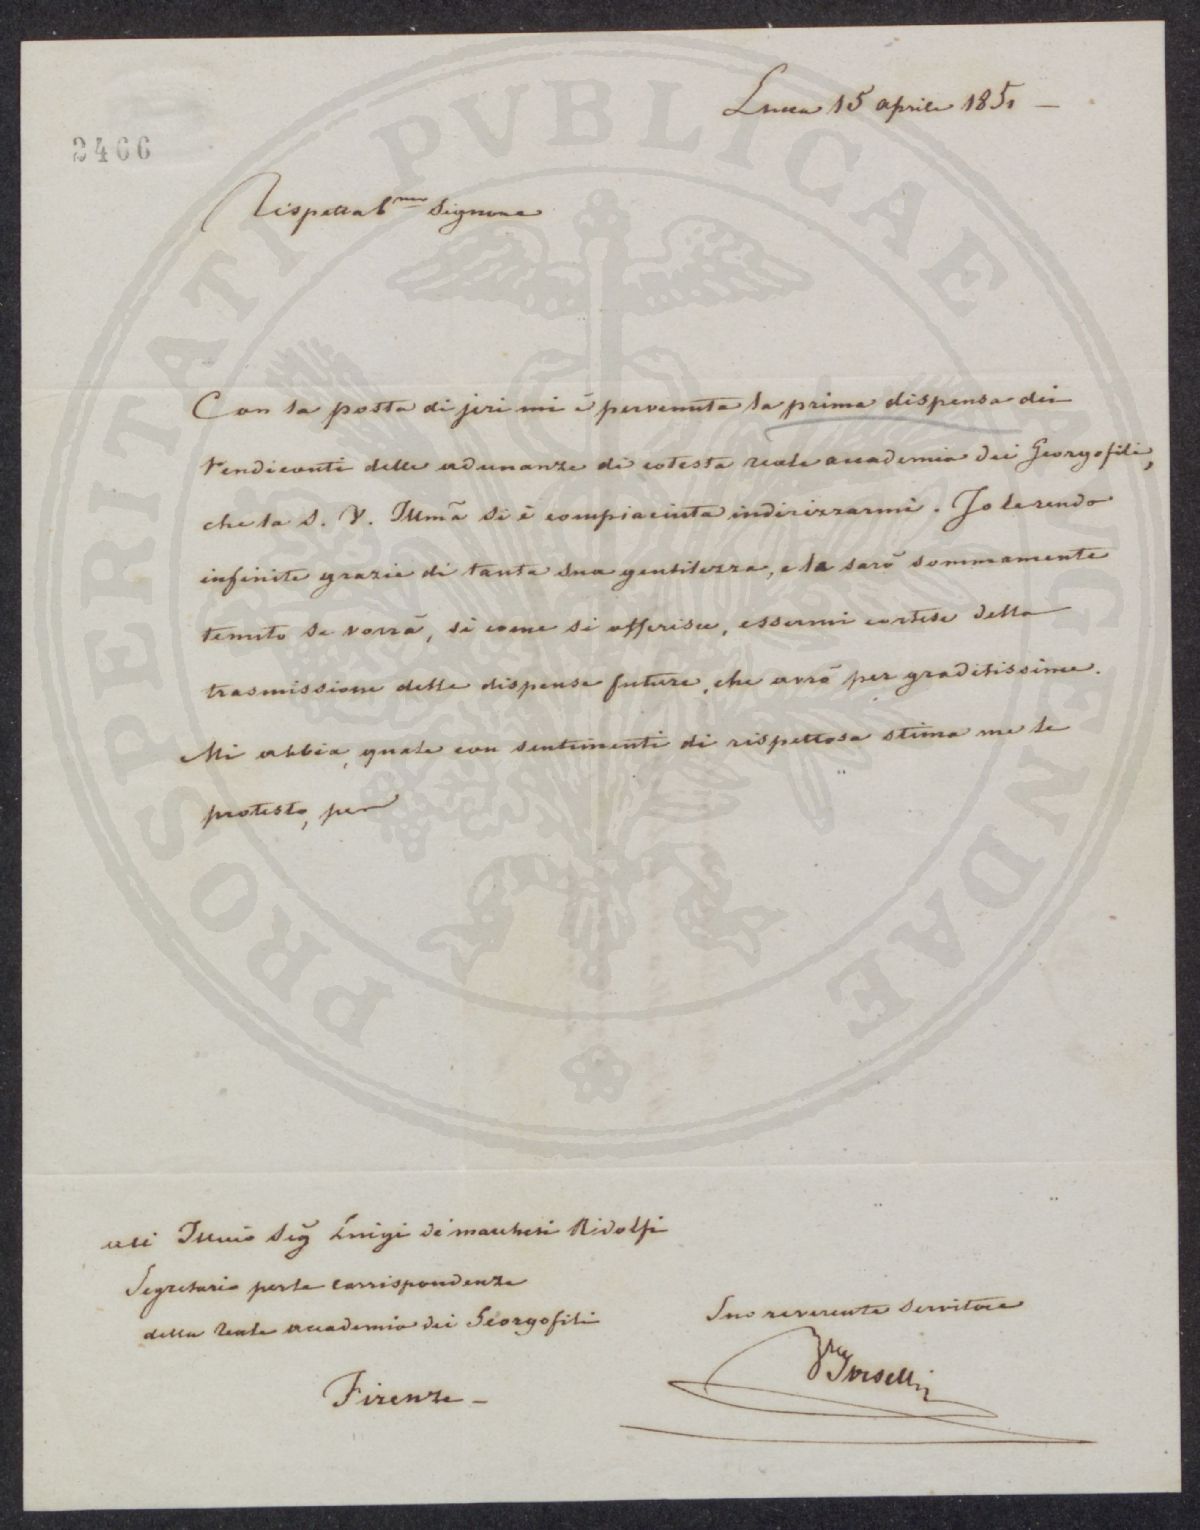 Lucca 15 aprile 1851 —
2466
Rispettab.mo Signore
Con la posta di jeri mi è pervenuta la prima dispensa dei
rendiconti delle adunanze di cotesta reale accademia dei Georgofili,
che la S. V. Illmã si è compiaciuta indirizzarmi. Io le rendo
infinite grazie di tanta sua gentilezza, e la sarò sommamente
tenuto se vorrà, si come si offerisce, essermi cortese della
trasmissione delle dispense future, che avrò per graditissime.
Mi abbia, quale con sentimenti di rispettosa stima me le
protesto, per
All' Illmo Sig Luigi de' marchesi Ridolfi
Segretario per le corrispondenze
della reale accademia dei Georgofili
Firenze —
Suo reverente servitore
PROSPERITATI PVBLICAE AVGENDAE